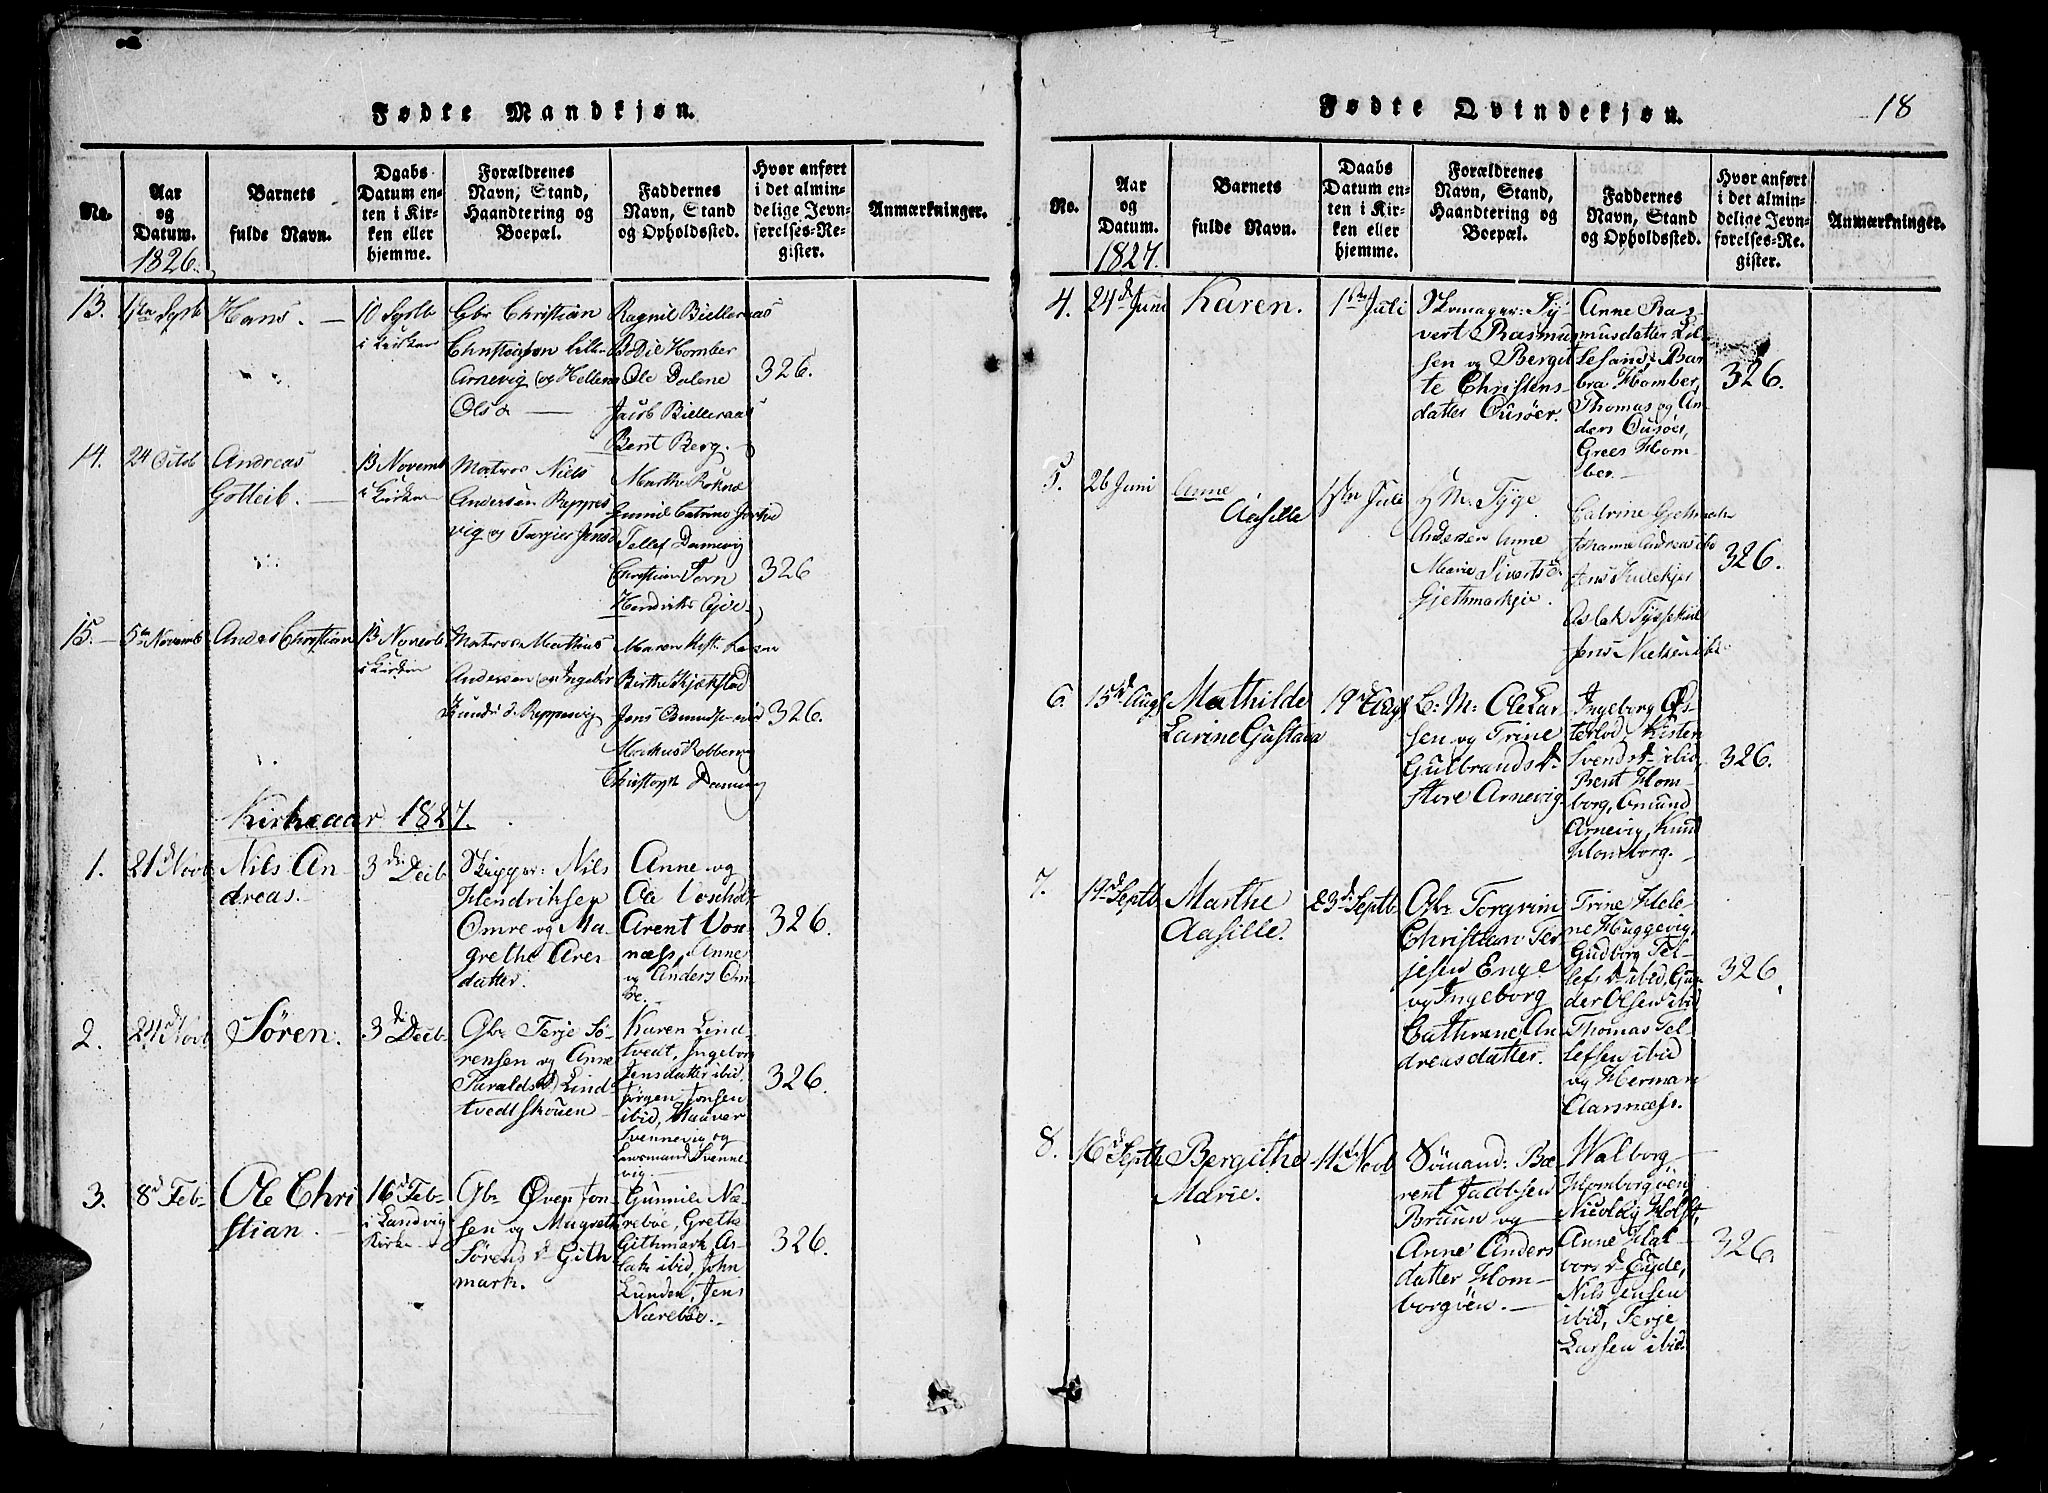 Fødte Mandkjøn.
No.
Aar
og
Datum.
1826.
Barnets
fulde Navn.
Daabs
Datum en-
ten i Kir-
ken eller
hjemme.
Forældrenes
Navn, Stand,
Haandtering og
Boepæl.
Faddernes
Navn, Stand
og Opholdssted.
Hvor anført
i det almin-
delige Jevn-
førelses-Re-
gister.
Anmærkninger.
13.
Hans.
i Kirken
Gbr Christian
Arnevig og Hellene
Ols d
Ragnil Bielleraas
Bodil Homber
Ole Dalene
Jacob Bielleraas
Bent Berg.
326.
14.
24 Octob
Andreas
Gotleib.
13 Novemb
i Kirken
Matros Niels
Andersen Reppes
vig og
Marthe
Tellef Damevig
Christian
326
15.
5te Novemb
Anders Christian
13 Novemb
i Kirken
Matros Mathias
Andersen og Ingebor
d. Reppesvig
Maren
Birthe
Jens
Markus Robberv
Christoph
326.
Kirkeaar 1827.
1.
21d Novb
Nils An
dreas.
3die Decb
Skipper: Nils
Hendriksen
Omre og Ma-
grethe Ares
datter.
Anne og
Ole Voshol
Arent Vos-
næss, Anne
og Anders Om-
re.
326.
2.
24d Novb
Søren.
3die Decb
Gbr Terje Sø-
rensen og Anne
Taralds d Lind-
tvedtskouen
Karen Lind-
tvedt, Ingeborg
Jensdatter ibid.
Jørgen Jonsen
ibid, Haaver
Svennevig og
Lensmand Svenne-
vig.
326.
3.
8d Feb-
Ole Chri
stian.
16d Feb-
i Landvig
Kirke
Gbr Øven Jon-
sen og Magrethe
Sørens d Gith-
mark.
Gunnild Næ-
rebøe, Grethe
Githmark, As-
lak ibid, John
Lunden, Jens
Nærebøe.
326.
Fødte Qvindekjøn.
18
No.
Aar
og
Datum.
1827.
Barnets
fulde Navn.
Daabs
Datum en-
ten i Kir-
ken eller
hjemme.
Forældrenes
Navn, Stand,
Haandtering og
Boepæl.
Faddernes
Navn, Stand
og Opholdssted.
Hvor anført
i det almin-
delige Jevn-
førelses-Re-
gister.
Anmærkninger.
4.
24d Juni
Karen.
1ste Juli
Skomager: Sy-
vert Rasmus-
sen og Bergit-
te Christens-
datter Ousøen.
Anne Ras-
musdatter Lil-
lesand, Bar
bra Homber,
Thomas og An-
ders Ousøen,
Grees Hom-
ber.
326.
5.
26 Juni
Anne
Aasille
1ste Juli
G M. Tyge
Andersen Anne
Marie Siverts d
Catrine
Johanne Andreas ibd
Jens
Aslak
Jens Nielsen ibd
326.
6.
15d Aug
Mathilde
Larine Gustava
19d Aug
B: M: Ole Lar
sen og Trine
Gulbrands d
Store Arnevig
Ingeborg Øs-
terlod, Kisten
Svends d ibid,
Bent Hom-
borg, Omund
Arnevig, Knud
Homborg.
326.
7.
17d Septb
Marthe
Aasille.
23d Septb
Gbr Torgrim
Christian Ter
jesen Enge
og Ingeborg
Cathrine An
dreasdatter.
Trine Hele-
ne Huggevig,
Gudborg Tel-
lefs d ibid, Gun
der Olsen ibid
Thomas Tel-
lefsen ibid
og Herman
Clarsnæss.
326.
8.
16d Septb
Bergithe
Marie.
11d Novb
Sømand: Be
rent Jacobsen
Bruun og
Anne Anders
datter Hom-
borgöen.
Walborg
Homborgöen,
Nicolay Holst,
Anne Hal-
vors d Eyde,
Nils Jensen
ibid, Terje
Larsen ibid
326.